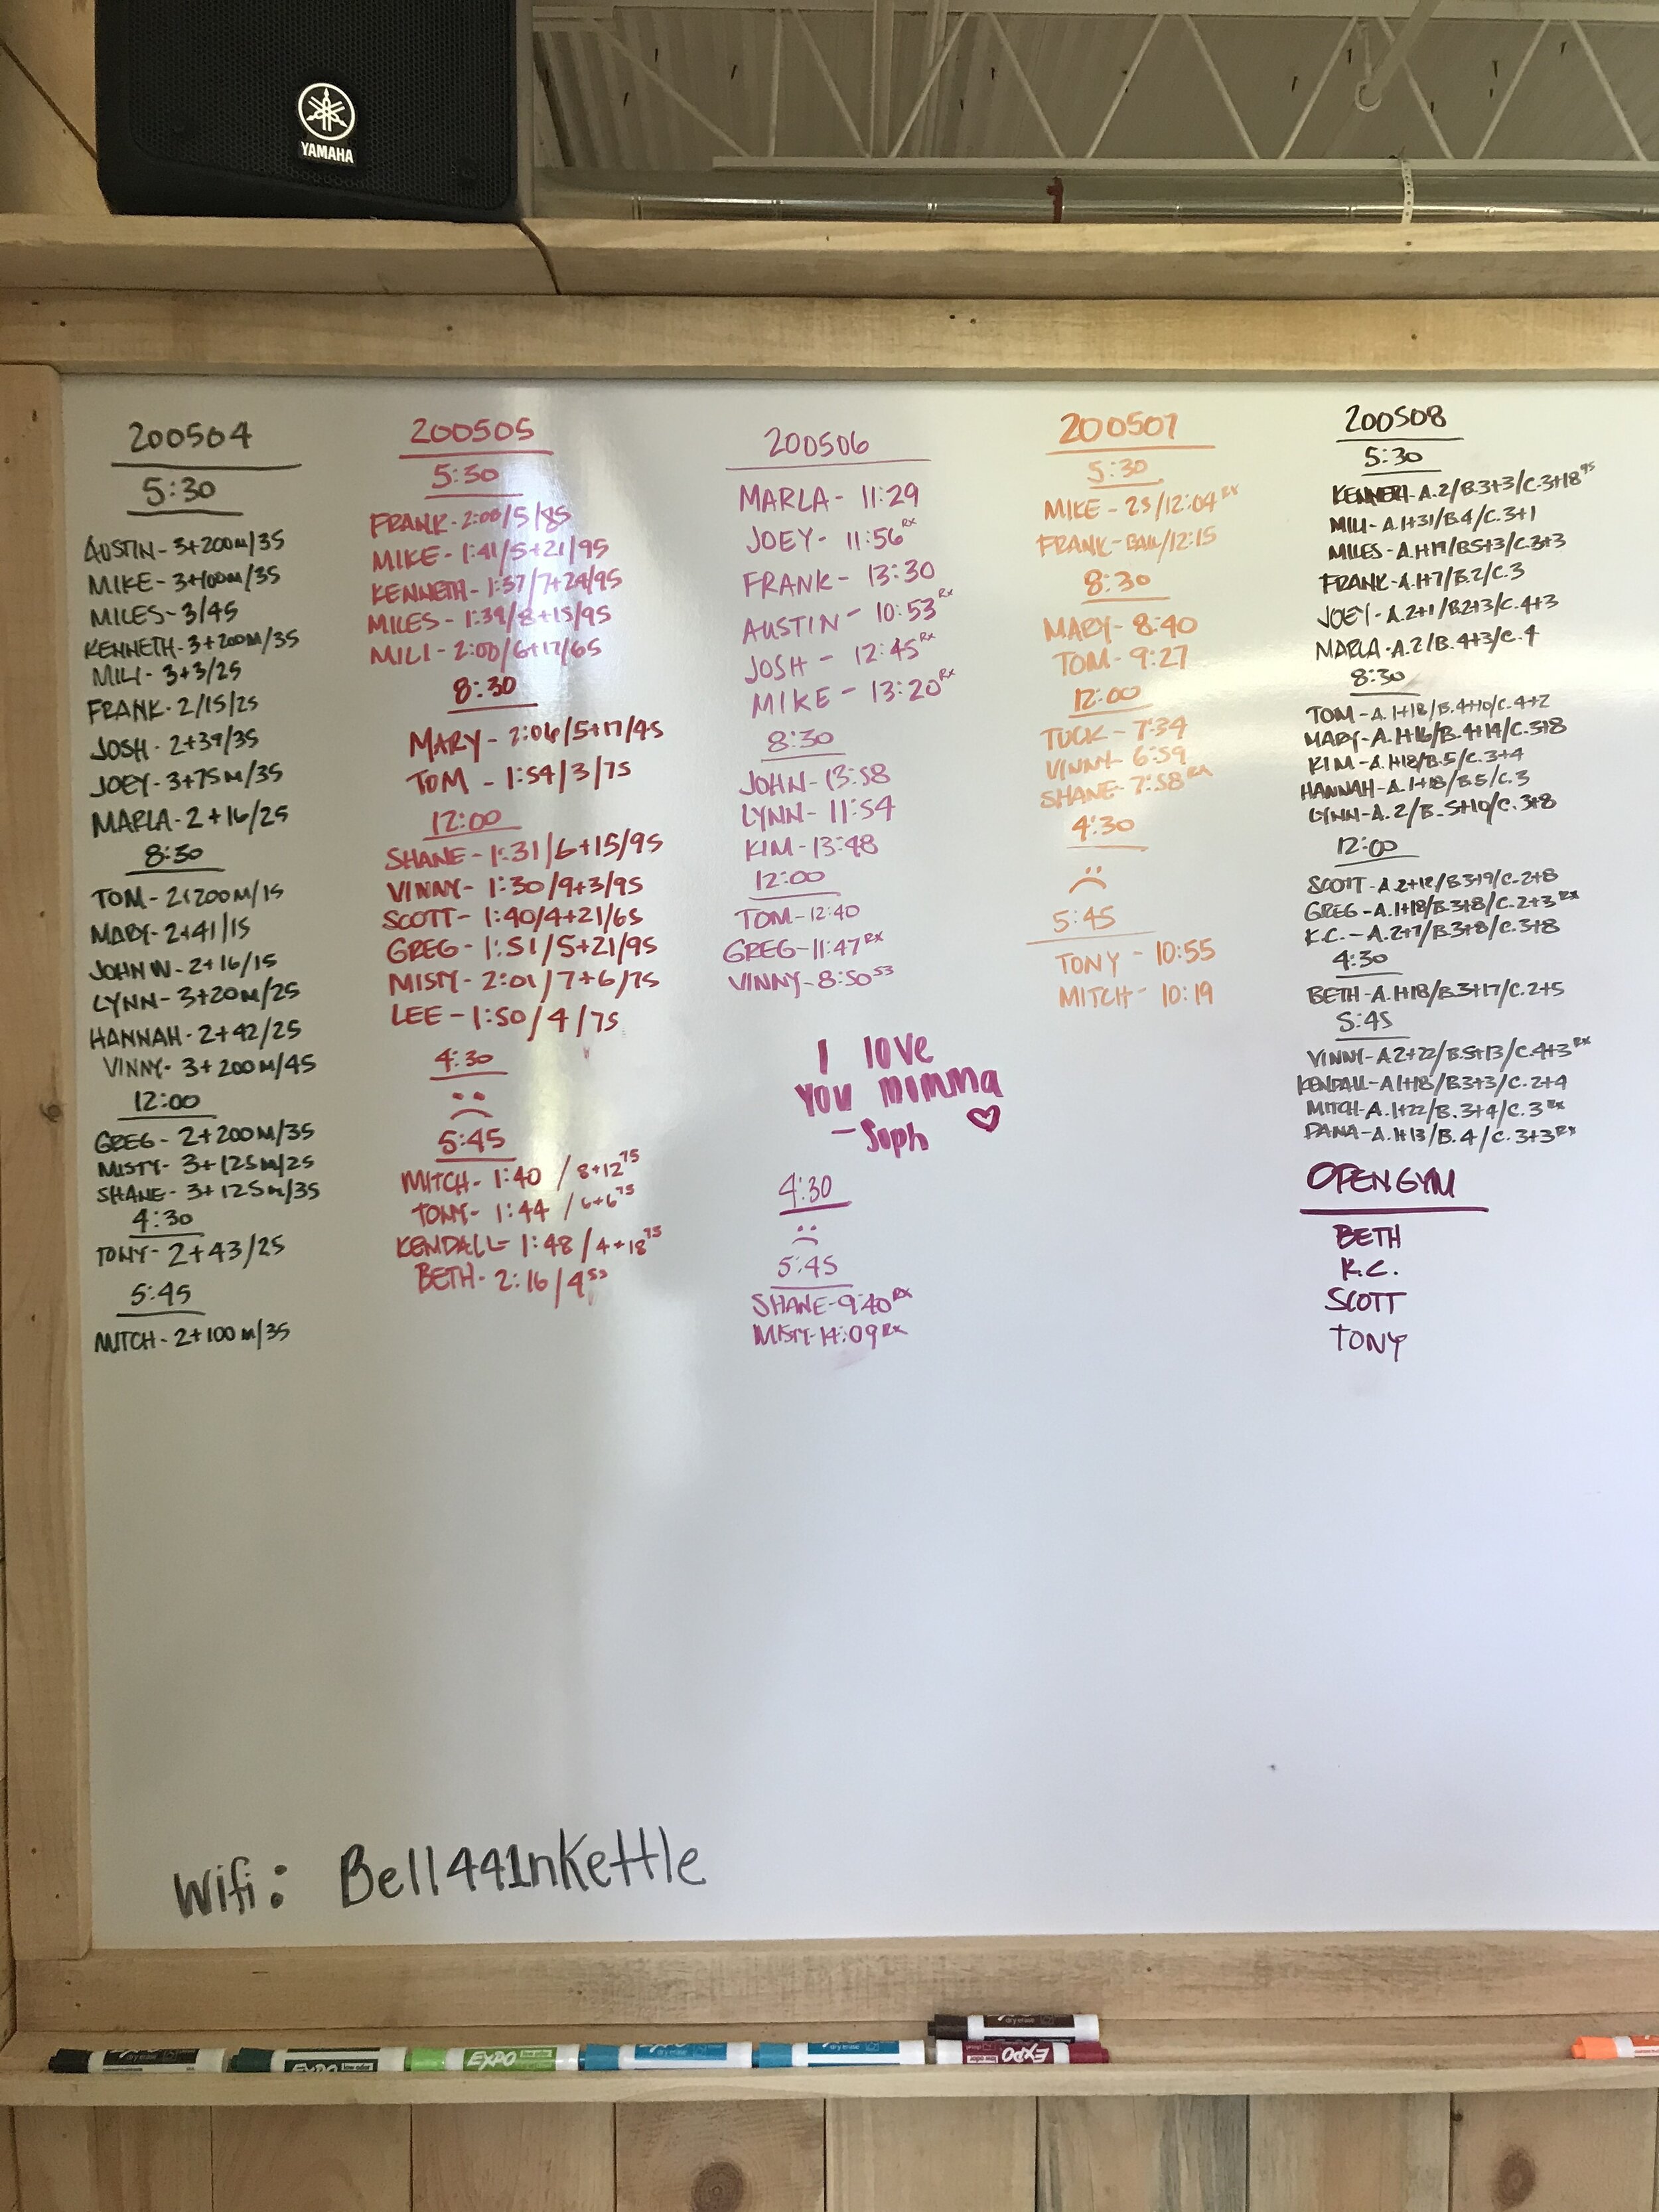 YAMAHA
200504
5:30
AUSTIN - 3+200m/35
MIKE - 3+100m/35
MILES - 3/45
KENNETH - 3+200m/35
MILI - 3+3/25
FRANK - 2/15/25
JOSH - 2+39/35
JOEY - 3+75m/35
MARLA - 2+16/25
8:30
TOM - 2+200m/15
MARY - 2+41/15
JOHN W - 2+16/15
LYNN - 3+20m/25
HANNAH - 2+42/25
VINNY - 3+200m/45
12:00
GREG - 2+200m/35
MISTY - 3+125m/25
SHANE - 3+125m/35
4:30
TONY - 2+43/25
5:45
MITCH - 2+100m/35
200505
5:30
FRANK - 2:00/5/85
MIKE - 1:41/5+21/95
KENNETH - 1:37/7+24/95
MILES - 1:39/8+15/95
MILI - 2:00/6+17/65
8:30
MARY - 2:06/5+17/45
TOM - 1:54/3/75
12:00
SHANE - 1:31/6+15/95
VINNY - 1:30/9+3/95
SCOTT - 1:40/4+21/65
GREG - 1:51/5+21/95
MISTY - 2:01/7+6/75
LEE - 1:50/4/75
4:30
5:45
MITCH - 1:40 / 8+12 75
TONY - 1:44 / 6+6 75
KENDALL - 1:48 / 4+18 75
BETH - 2:16 / 4 53
200506
MARLA - 11:29
JOEY - 11:56 RX
FRANK - 13:30
AUSTIN - 10:53 RX
JOSH - 12:45 RX
MIKE - 13:20 RX
8:30
JOHN - 13:58
LYNN - 11:54
KIM - 13:48
12:00
TOM - 12:40
GREG - 11:47 RX
VINNY - 8:50 53
I love
you mimma
- Soph
4:30
5:45
SHANE - 9:40 RX
MISTY - 14:09 RX
200507
5:30
MIKE - 25/12:04 RX
FRANK - BAIL/12:15
8:30
MARY - 8:40
TOM - 9:27
12:00
TUCK - 7:34
VINNY - 6:59
SHANE - 7:58 RX
4:30
5:45
TONY - 10:55
MITCH - 10:19
200508
5:30
A.2/B.3+3/C.3+18 95
MILI - A.1+31/B.4/C.3+1
MILES - A.1+19/B.5+3/C.3+3
FRANK - A.1+7/B.2/C.3
JOEY - A.2+1/B.2+3/C.4+3
MARLA - A.2/B.4+3/C.4
8:30
TOM - A.1+18/B.4+10/C.4+2
MARY - A.1+16/B.4+14/C.3+8
KIM - A.1+18/B.5/C.3+4
HANNAH - A.1+18/B.5/C.3
LYNN - A.2/B.5+10/C.3+8
12:00
SCOTT - A.2+12/B.3+9/C.2+8
GREG - A.1+18/B.3+8/C.2+3 RX
K.C. - A.2+7/B.3+8/C.3+8
4:30
BETH - A.1+18/B.3+17/C.2+5
5:45
VINNY - A.2+22/B.5+13/C.4+3 RX
KENDALL - A.1+18/B.3+3/C.2+4
MITCH - A.1+22/B.3+4/C.3 RX
DANA - A.1+13/B.4/C.3+3 RX
OPEN GYM
BETH
K.C.
SCOTT
TONY
Wifi: Bell441nKettle
dry erase
EXPO low odor
EXPO
dry erase
dry erase
EXPO